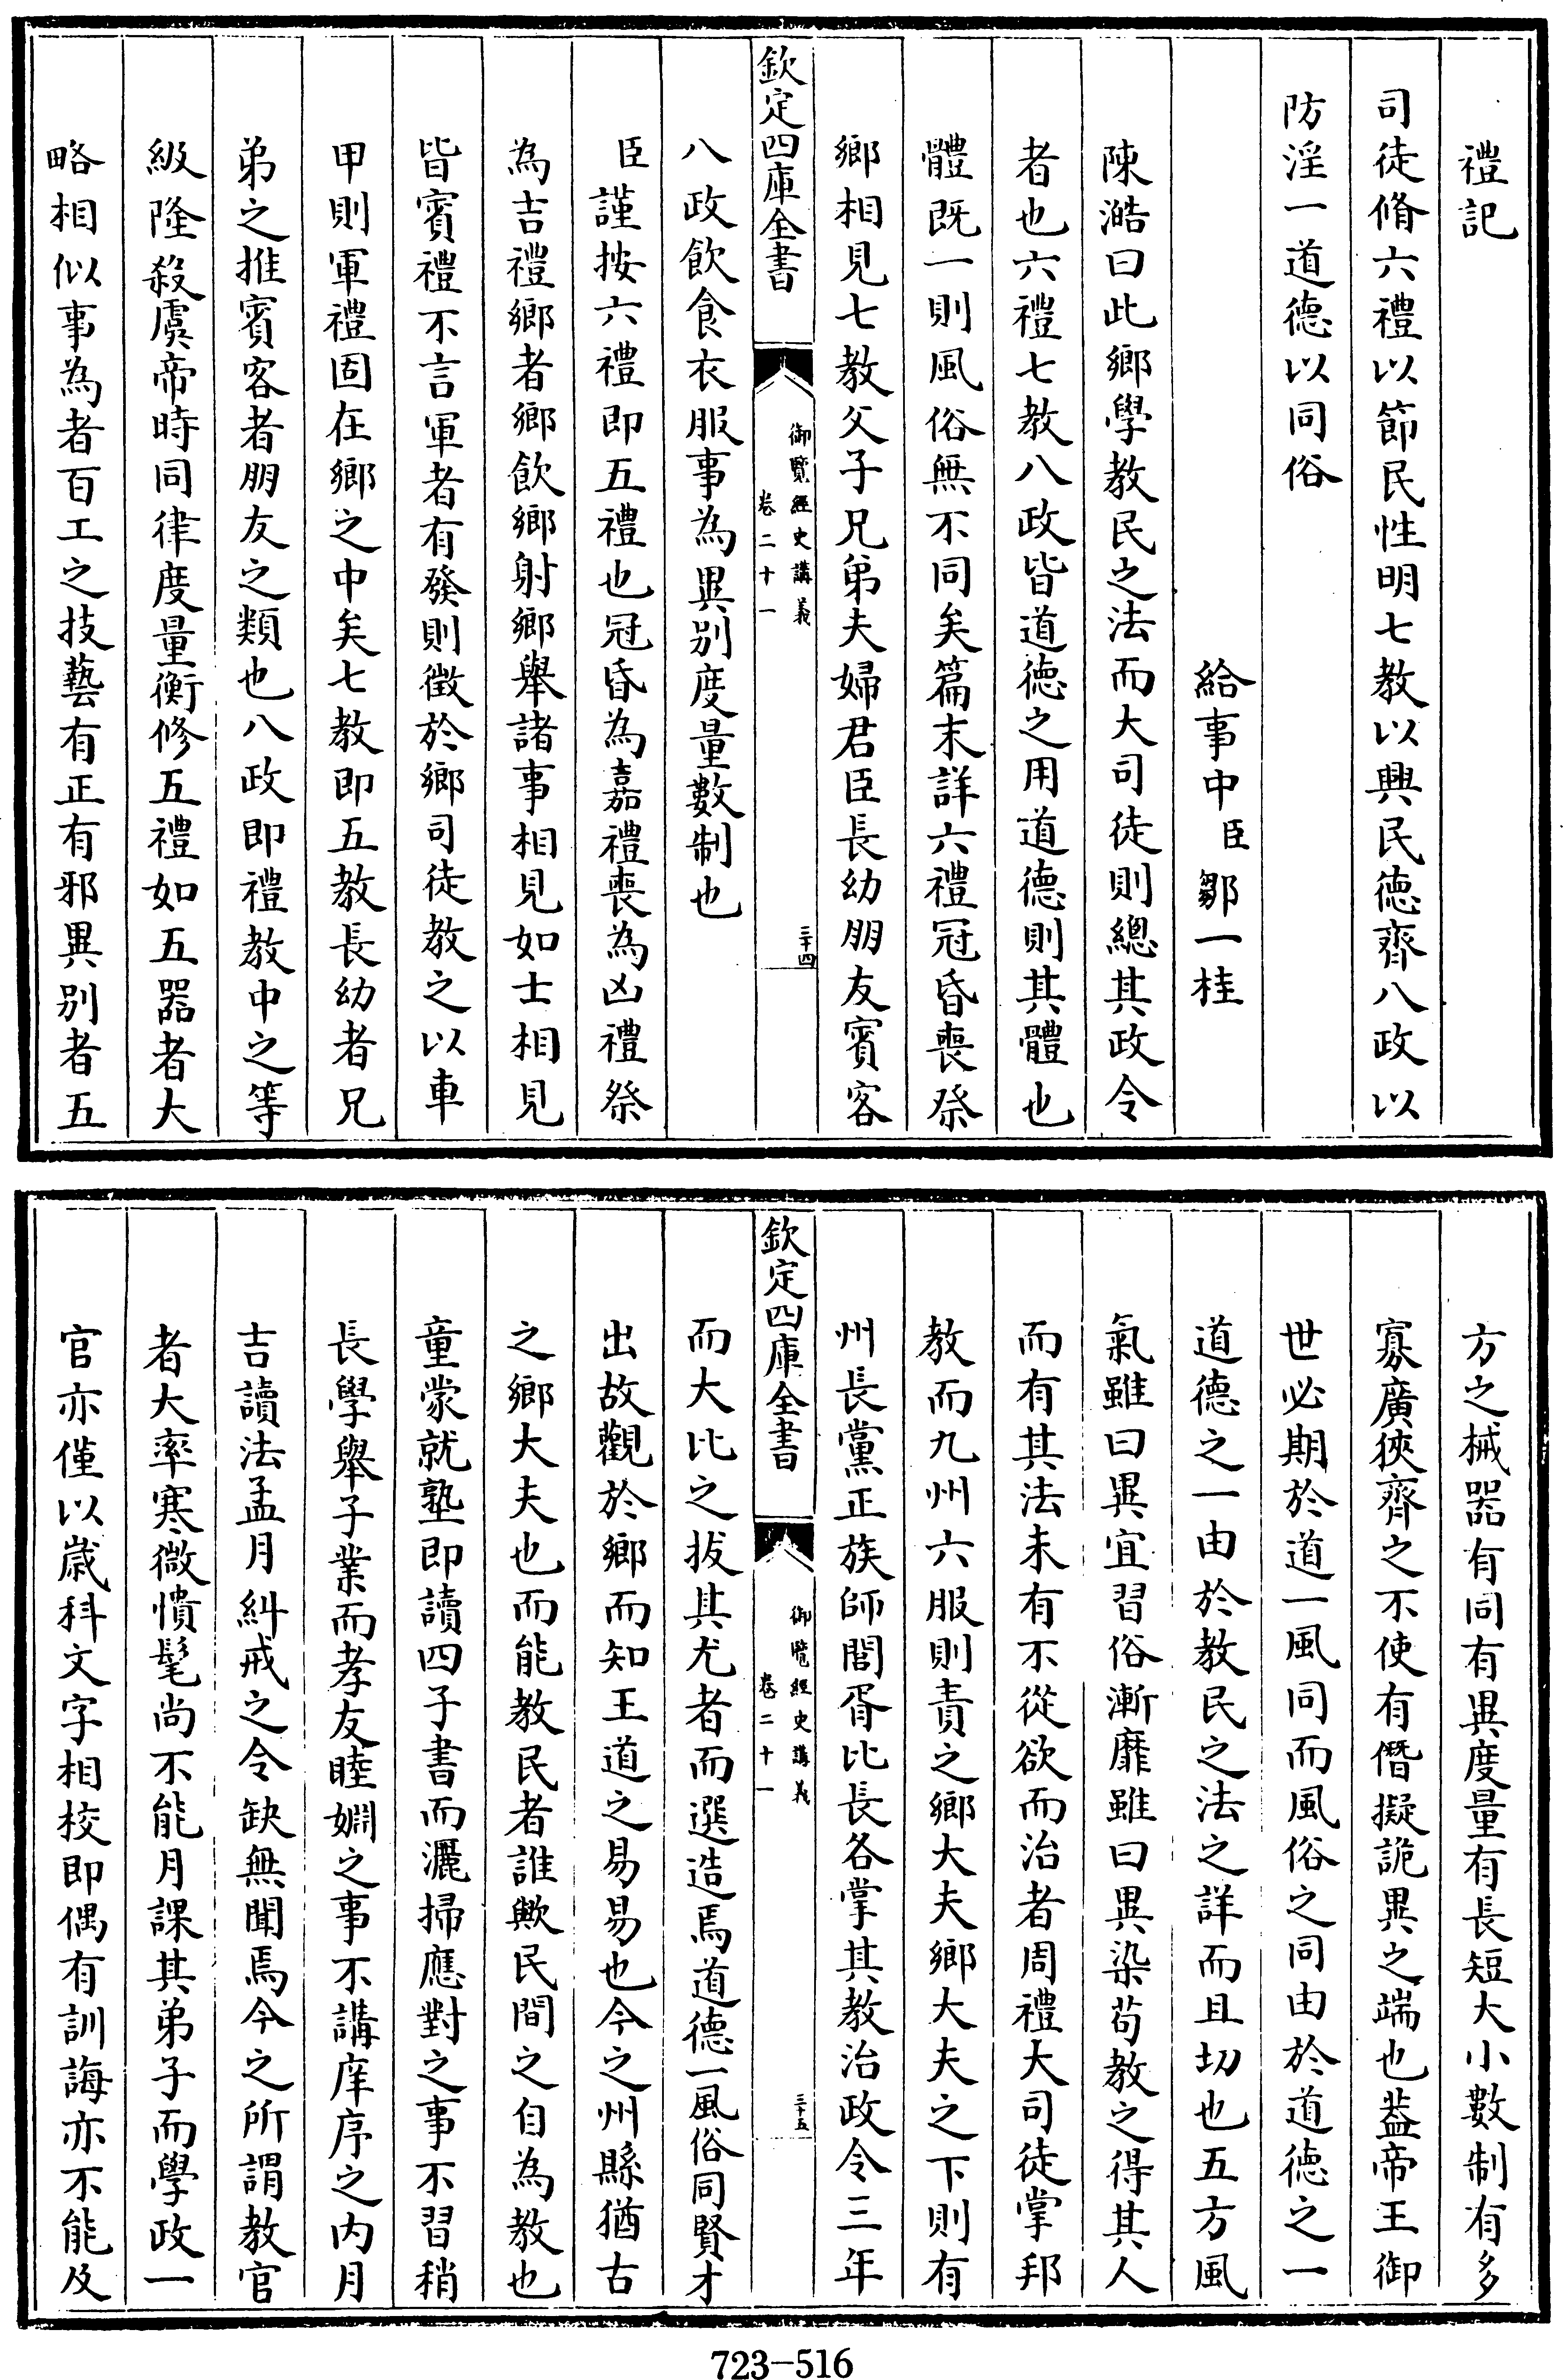 禮記
司徒脩六禮以節民性明七教以興民德齊八政以
防淫一道德以同俗
給事中臣鄒一桂
陳澔曰此鄉學教民之法而大司徒則總其政令
者也六禮七教八政皆道德之用道德則其體也
體既一則風俗無不同矣篇末詳六禮冠昏喪祭
鄉相見七教父子兄弟夫婦君臣長幼朋友賓客
欽定四庫全書
御覽經史講義
卷二十一
三十四
八政飲食衣服事為異别度量數制也
臣謹按六禮即五禮也冠昏為嘉禮喪為凶禮祭
為吉禮鄉者鄉飲鄉射鄉舉諸事相見如士相見
皆賓禮不言軍者有發則徵於鄉司徒教之以車
甲則軍禮固在鄉之中矣七教即五教長幼者兄
弟之推賓客者朋友之類也八政即禮教中之等
級隆殺虞帝時同律度量衡修五禮如五器者大
略相似事為者百工之技藝有正有邪異别者五
方之械器有同有異度量有長短大小數制有多
寡廣狹齊之不使有僭擬詭異之端也葢帝王御
世必期於道一風同而風俗之同由於道德之一
道德之一由於教民之法之詳而且切也五方風
氣雖曰異宜習俗漸靡雖曰異染苟教之得其人
而有其法未有不從欲而治者周禮大司徒掌邦
教而九州六服則責之鄉大夫鄉大夫之下則有
州長黨正族師閭胥比長各掌其教治政令三年
欽定四庫全書
御覽經史講義
卷二十一
三十五
而大比之拔其尤者而選造焉道德一風俗同賢才
出故觀於鄉而知王道之易易也今之州縣猶古
之鄉大夫也而能教民者誰歟民間之自為教也
童蒙就塾即讀四子書而灑掃應對之事不習稍
長學舉子業而孝友睦婣之事不講庠序之内月
吉讀法孟月糾戒之令缺無聞焉今之所謂教官
者大率寒微憒髦尚不能月課其弟子而學政一
官亦僅以歲科文字相校即偶有訓誨亦不能及
723-516